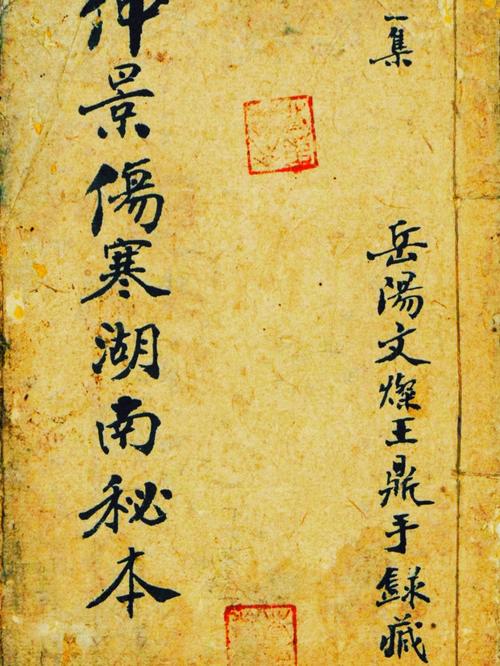 一集
岳陽文燦王鼎手錄藏
仲景傷寒湖南秘本